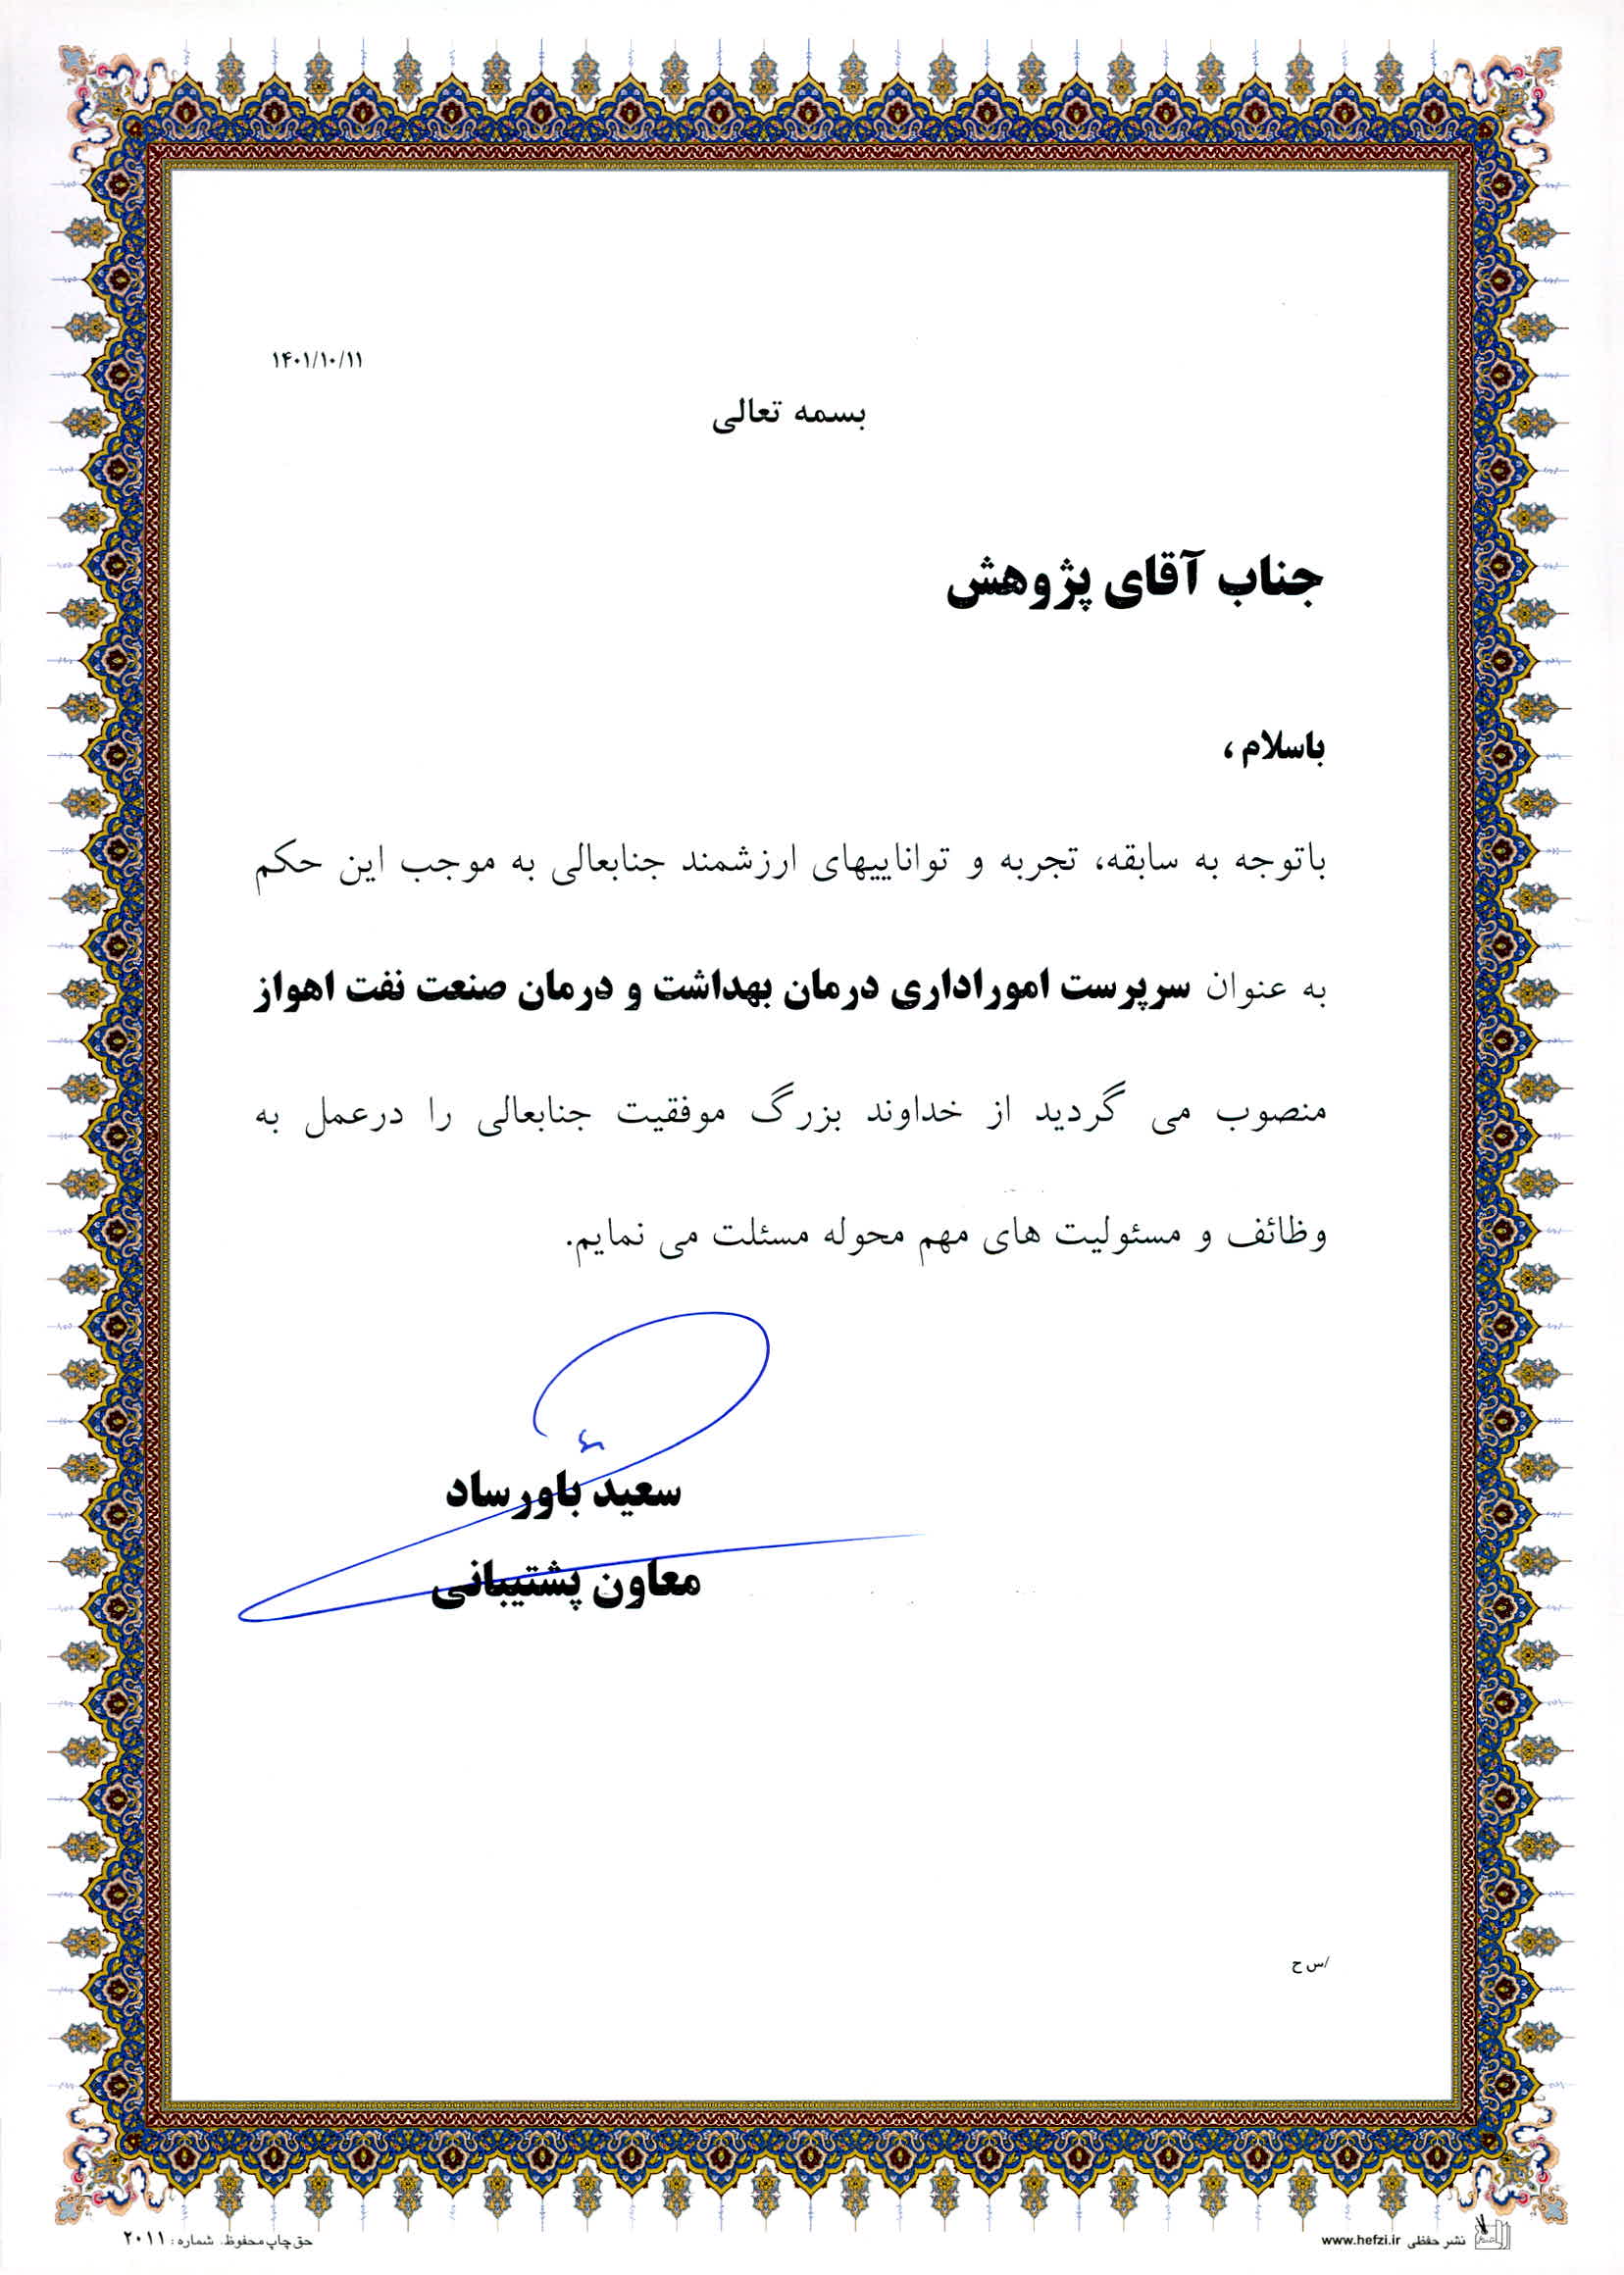 ۱۴۰۱/۱۰/۱۱
بسمه تعالی
جناب آقای پژوهش
باسلام ،
باتوجه به سابقه، تجربه و تواناییهای ارزشمند جنابعالی به موجب این حکم
به عنوان سرپرست اموراداری درمان بهداشت و درمان صنعت نفت اهواز
منصوب می گردید از خداوند بزرگ موفقیت جنابعالی را درعمل به
وظائف و مسئولیت های مهم محوله مسئلت می نمایم.
سعید باورساد
معاون پشتیبانی
/س ح
نشر حفظی www.hefzi.ir
حق چاپ محفوظ. شماره: ۲۰۱۱